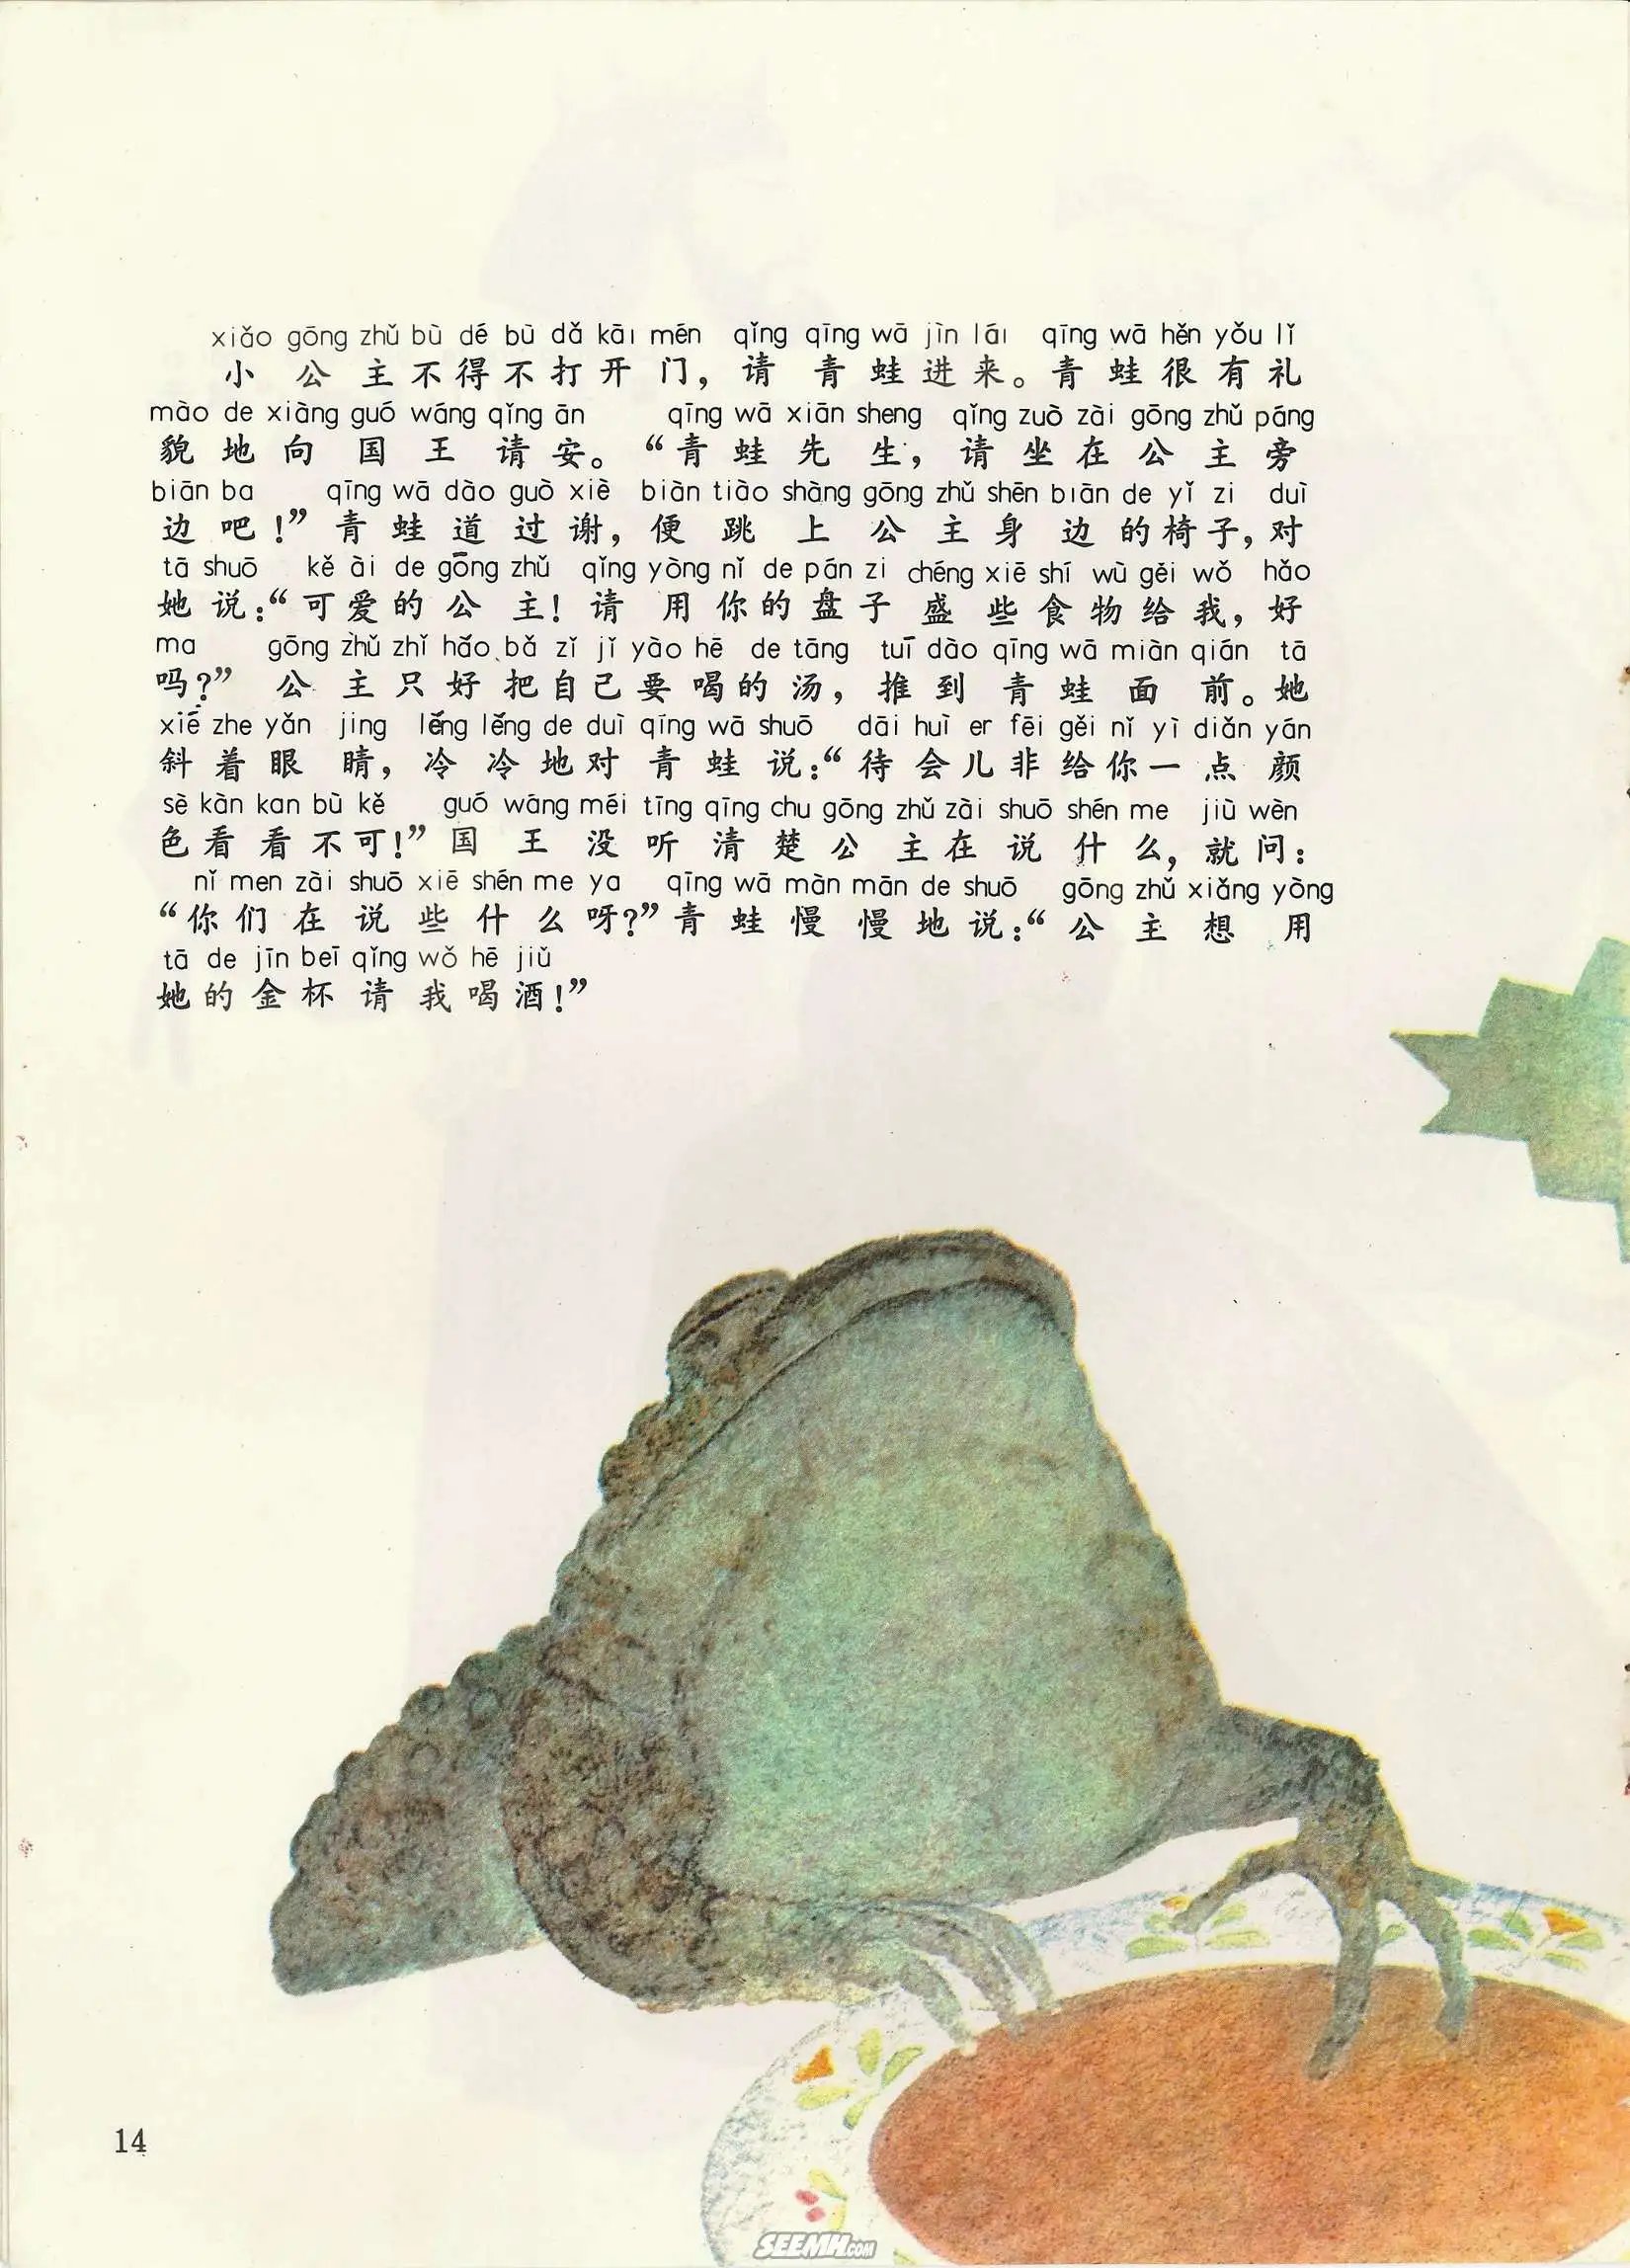 xiǎo gōng zhǔ bù dé bù dǎ kāi mén qǐng qīng wā jìn lái qīng wā hěn yǒu lǐ
小公主不得不打开门，请青蛙进来。青蛙很有礼
mào de xiàng guó wáng qǐng ān qīng wā xiān sheng qǐng zuò zài gōng zhǔ páng
貌地向国王请安。“青蛙先生，请坐在公主旁
biān ba qīng wā dào guò xiè biàn tiào shàng gōng zhǔ shēn biān de yǐ zi duì
边吧！”青蛙道过谢，便跳上公主身边的椅子，对
tā shuō kě ài de gōng zhǔ qǐng yòng nǐ de pán zi chéng xiē shí wù gěi wǒ hǎo
她说：“可爱的公主！请用你的盘子盛些食物给我，好
ma gōng zhǔ zhǐ hǎo bǎ zǐ jǐ yào hē de tāng tuī dào qīng wā miàn qián tā
吗？” 公主只好把自己要喝的汤，推到青蛙面前。她
xié zhe yǎn jing lěng lěng de duì qíng wā shuō dāi huì er fēi gěi nǐ yì diǎn yán
斜着眼睛，冷冷地对青蛙说：“待会儿非给你一点颜
sè kàn kan bù kě guó wáng méi tīng qīng chu gōng zhǔ zài shuō shén me jiù wèn
色看看不可！”国王没听清楚公主在说什么，就问：
nǐ men zài shuō xiē shén me ya qīng wā màn mān de shuō gōng zhǔ xiǎng yòng
“你们在说些什么呀？”青蛙慢慢地说：“公主想用
tā de jīn beī qǐng wǒ hē jiǔ
她的金杯请我喝酒！”
14
SEEMH.COM